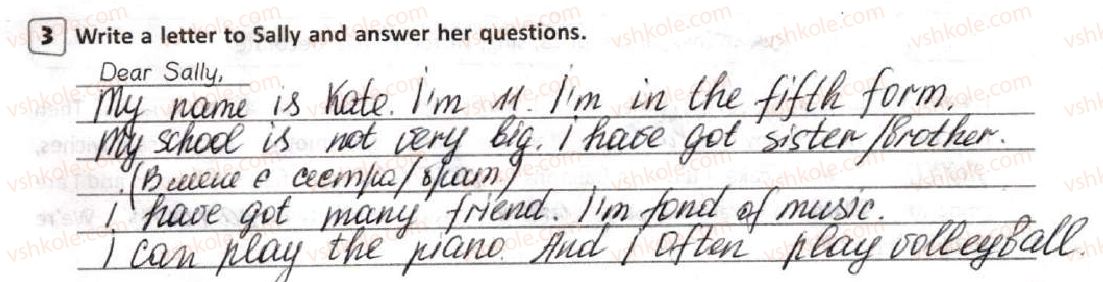 3 Write a letter to Sally and answer her questions.
Dear Sally,
My name is Kate. I'm 11. I'm in the fifth form.
My school is not very big. I have got sister/brother.
(В мене є сестра/брат)
I have got many friend. I'm fond of music.
I can play the piano. And I often play volleyball.